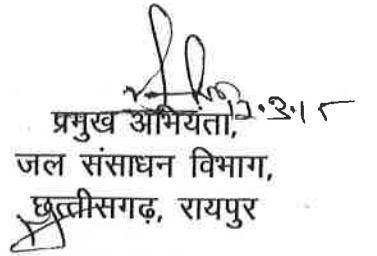 12.3.15
प्रमुख अभियंता,
जल संसाधन विभाग,
छत्तीसगढ़, रायपुर